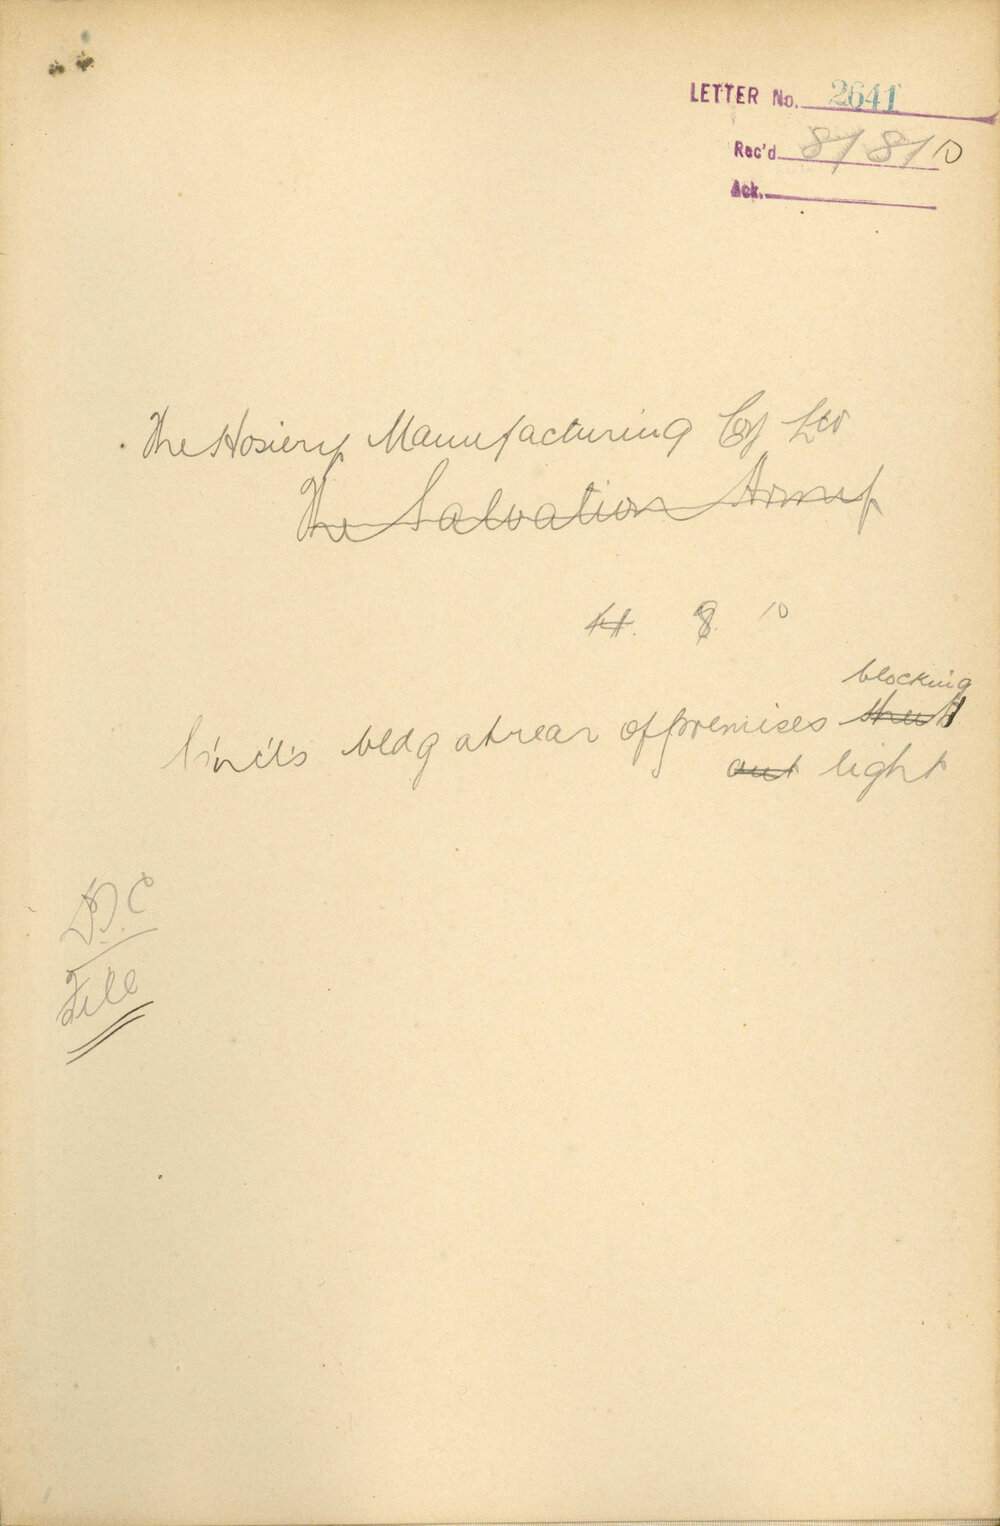 LETTER No. 2641
Rec'd 8/8/10
Ack.
The Hosiery Manufacturing Coy Ltd
The Salvation Army
8 10
blocking
bldg at rear of premises shutt
out light
D.C
File